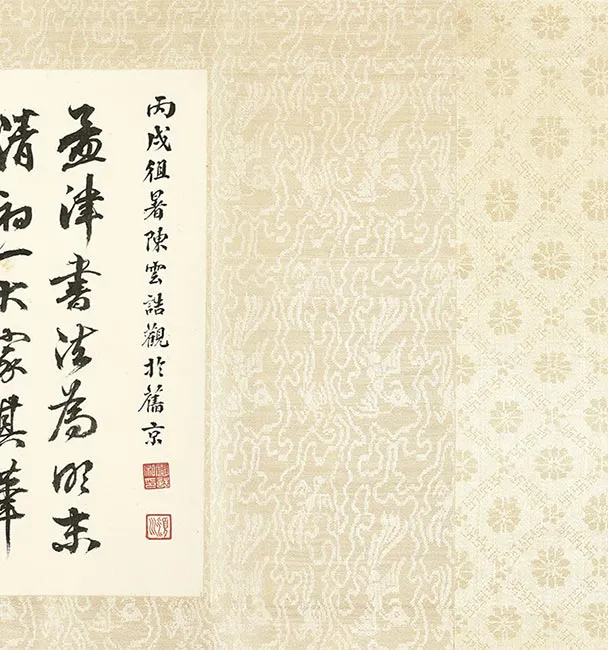 丙戌徂暑陳雲誥觀於舊京
孟津書法為明末
清初一大家其筆